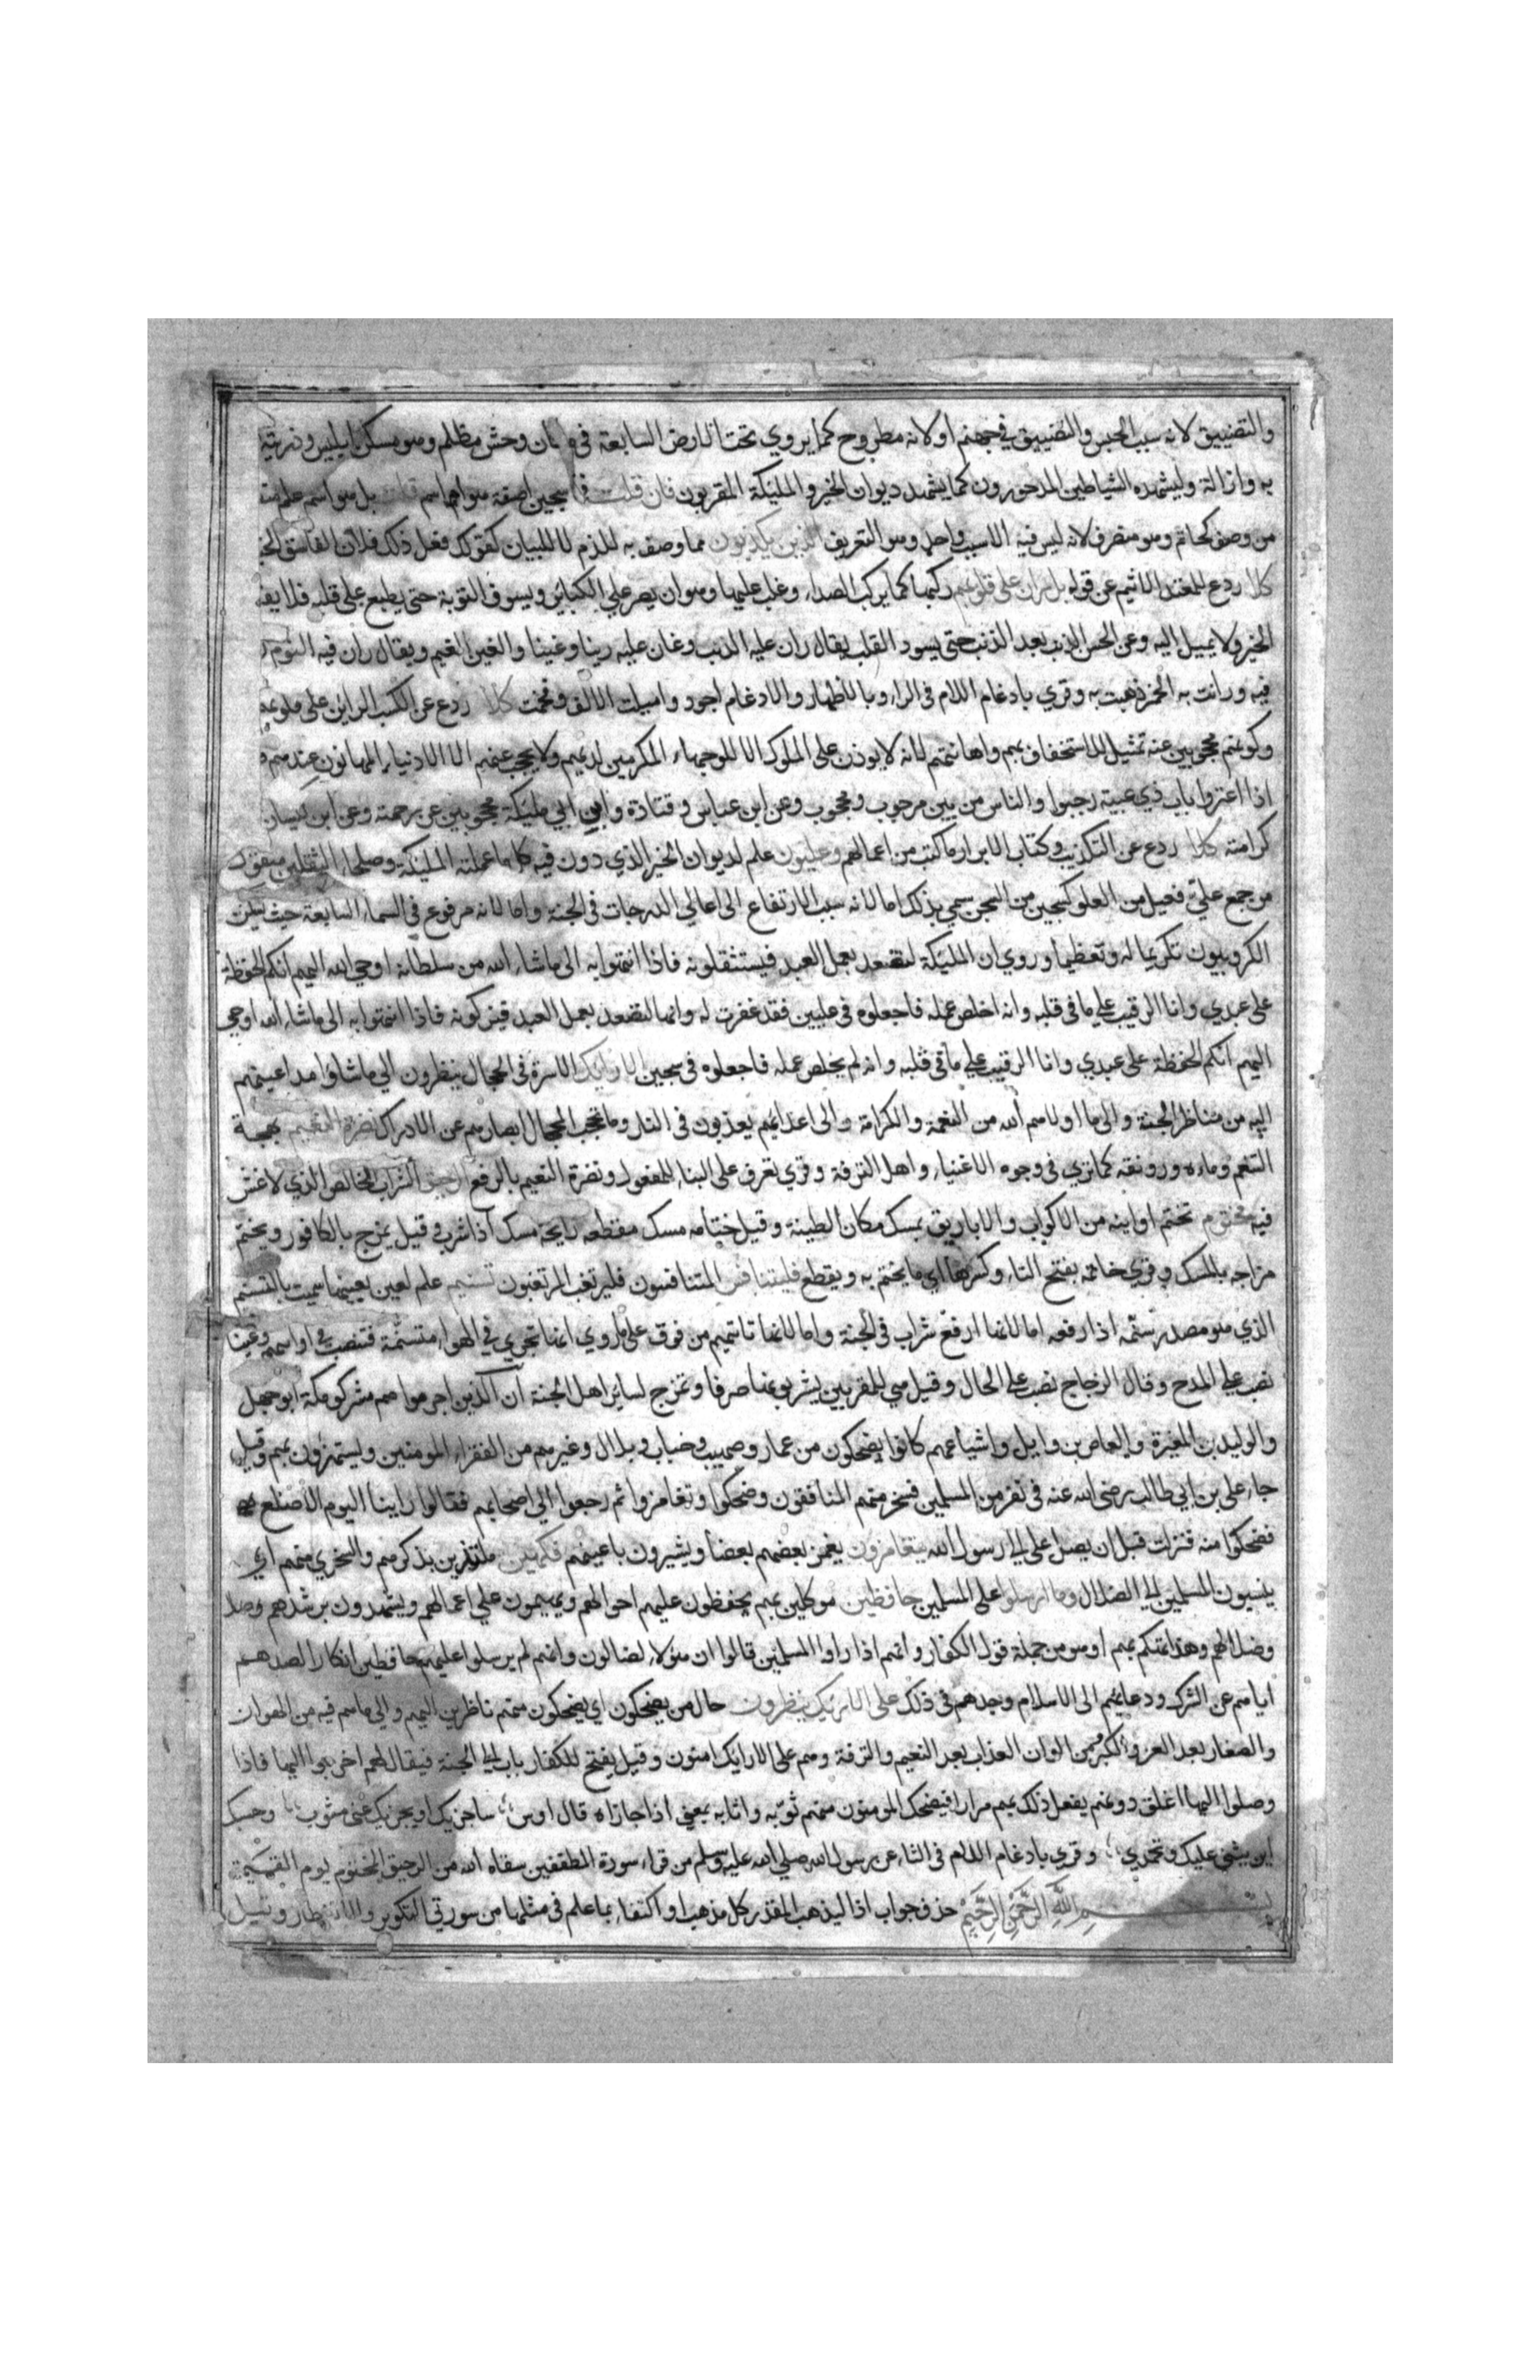 والتضييق لانه سبب الحبس والتضييق في جهنم او لانه مطروح كما يروي تحت الارض السابعة في مكان وحش مظلم وهو مسكن ابليس وذريته
به واذالة وليشهده الشياطين المدحورون كما يشهد ديوان الخير المليكة المقربون فان قلت فما سجين اصفة هو ام اسم قلت بل هو اسم علم منقول
من وصف كحاتم وهو منصرف لانه ليس فيه الا سبب واحد وهو التعريف الذين يكذبون مما وصف به للذم لا للبيان كقولك فعل ذلك فلان الفاسق
كلا ردع للمعتد الاثيم عن قوله بل ران على قلوبهم ركبها كما يركب الصدا وغلب عليها وهو ان يصر على الكبائر ويسوف التوبة حتى يطبع على قلبه فلا
الخير ولا يميل اليه وعن الحسن الذنب بعد الذنب حتى يسود القلب يقال ران عليه الذنب وغان عليه رينا وغينا والغين الغيم ويقال ران فيه النوم
فيه ورانت به الخمر ذهبت به وقري بادغام اللام في الراء وبالاظهار والادغام اجود واميلت الالف وفخمت كلا ردع عن الكسب الراين على قلوبهم
وكونهم محجوبين عنه تمثيل للاستخفاف بهم واهانتهم لانه لا يوذن على الملوك الا للوجهاء المكرمين لديهم ولا يحجب عنهم الا الادنياء المهانون عندهم
اذا اعتروا باب ذي عبية رجبوا والناس من بين مرجوب ومحجوب وعن ابن عباس وقتادة وابن ابي مليكة محجوبين عن رحمته وعن ابن كيسان
كرامته كلا ردع عن التكذيب وكتاب الابرار ما كتب من اعمالهم وعليون علم لديوان الخير الذي دون فيه كل ما عملته المليكة وصلحاء الثقلين منقول
من جمع علي فعيل من العلو كسجين من السجن سمي بذلك اما لانه سبب الارتفاع الى اعالي الدرجات في الجنة واما لانه مرفوع في السماء السابعة حيث يسكن
الكروبيون تكريما له وتعظيما وروي ان المليكة لتصعد بعمل العبد فيستقلونه فاذا انتهوا به الى ما شاء الله من سلطانه اوحى الله اليهم انكم الحفظة
على عبدي وانا الرقيب على ما في قلبه وانه اخلص عمله فاجعلوه في عليين فقد غفرت له وانها لتصعد بعمل العبد فيزكونه فاذا انتهوا به الى ما شاء الله اوحي
اليهم انكم الحفظة على عبدي وانا الرقيب على ما في قلبه وانه لم يخلص عمله فاجعلوه في سجين الارائك الاسرة في الحجال ينظرون الي ما شاوا مد اعينهم
اليه من مناظر الجنة والى ما اولاهم الله من النعمة والكرامة والى اعدائهم يعذبون في النار وما تحجب الحجال ابصارهم عن الادراك نضرة النعيم بهجة
التنعم وماءه ورونقه كما تري في وجوه الاغنياء واهل الترفة وقري تعرف على البناء للمفعول ونضرة النعيم بالرفع الرحيق الشراب الخالص الذي لا غش
فيه مختوم تختم اوانيه من الاكواب والاباريق بمسك مكان الطينة وقيل ختامه مسك مقطعه رايحة مسك اذا شرب وقيل يمزج بالكافور ويختم
مزاجه بالمسك وقري خاتمه بفتح التاء وكسرها اي ما يختم به ويقطع فليتنافس المتنافسون فليرتغب المرتغبون تسنيم علم لعين بعينها سميت بالتسنيم
الذي هو مصدر سنمه اذا رفعه اما لانها ارفع شراب في الجنة واما لانها تاتيهم من فوق على ما روي انها تجري في الهواء متسنمة فتنصب في اوانيهم وعينا
نصب على المدح وقال الزجاج نصب على الحال وقيل هي للمقربين يشربونها صرفا وتمزج لساير اهل الجنة ان الذين اجرموا هم مشركو مكة ابو جهل
والوليد بن المغيرة والعاص بن وايل واشياعهم كانوا يضحكون من عمار وصهيب وخباب وبلال وغيرهم من الفقراء المومنين ويستهزؤن بهم وقيل
جاء على بن ابي طالب رضى الله عنه في نفر من المسلمين فسخر منهم المنافقون وضحكوا وتغامزوا ثم رجعوا الي اصحابهم فقالوا راينا اليوم الاصلع
فضحكوا منه فنزلت قبل ان يصل على الى رسول الله يتغامزون يغمز بعضهم بعضا ويشيرون باعينهم فكهين ملتذين بذكرهم والسخري منهم اي
ينسبون المسلمين الى الضلال وما ارسلوا على المسلمين حافظين موكلين بهم يحفظون عليهم احوالهم ويهيمنون على اعمالهم ويشهدون برشدهم
وضلالهم وهذا تهكم بهم او هو من جملة قول الكفار وانهم اذا راوا المسلمين قالوا ان هؤلاء لضالون وانهم لم يرسلوا عليهم حافظين انكارا لصدهم
اياهم عن الشرك ودعائهم الى الاسلام وجدهم في ذلك على الارائك ينظرون حال من يضحكون اي يضحكون منهم ناظرين اليهم والي ما هم فيه من الهوان
والصغار بعد العزة والكبر ومن الوان العذاب بعد النعيم والترفة وهم على الارايك امنون وقيل يفتح للكفار باب الى الجنة فيقال لهم اخرجوا اليها فاذا
وصلوا اليها اغلق دونهم يفعل ذلك بهم مرارا فيضحك المومنون منهم ثوبه واثابه بمعني اذا جازاه قال اوس ساجزيك او يجزيك عني مثوب وحسبك
ان يثنى عليك وتحمدي وقري بادغام اللام في الثاء عن رسول الله صلي الله عليه وسلم من قراء سورة المطففين سقاه الله من الرحيق المختوم يوم القيمة
بسم الله الرحمن الرحيم حذف جواب اذا ليذهب المقدر كل مذهب او اكتفاء بما علم في مثلها من سورتي التكوير والانفطار وقيل